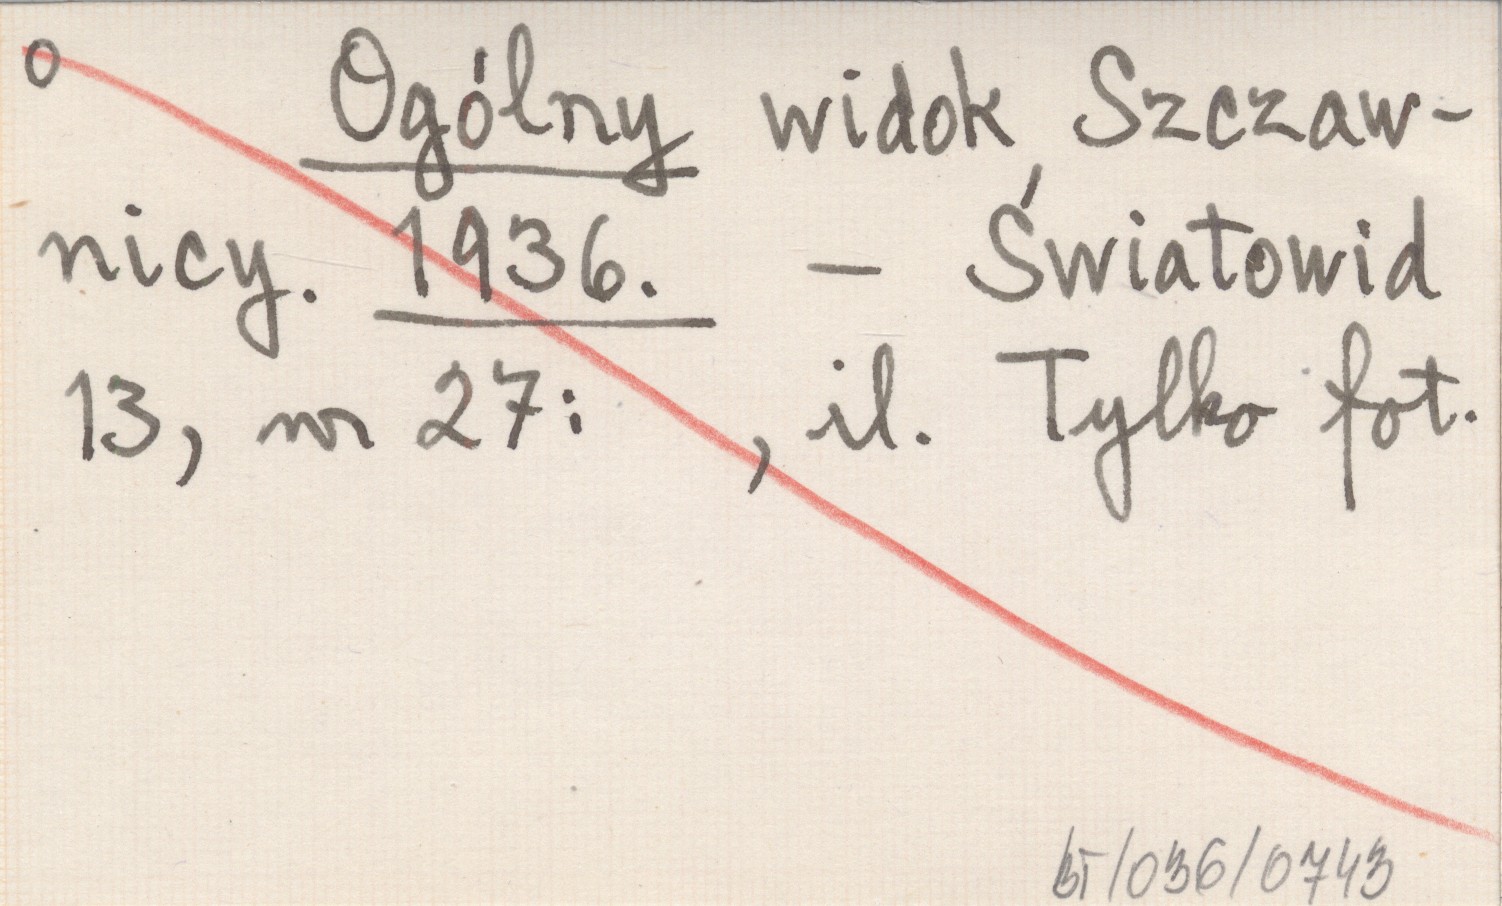 o Ogólny widok Szczaw-
nicy. 1936. — Światowid
13, nr 27: , il. Tylko fot.
BT/036/0743